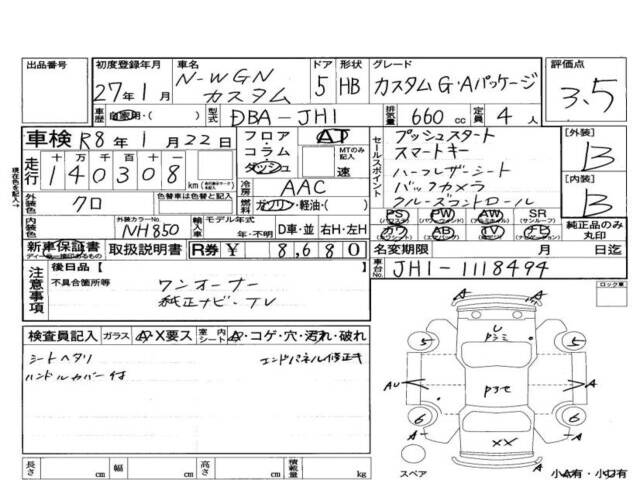 出品番号
初度登録年月
27年1月
車名
N-WGN
カスタム
ドア
5
形状
HB
グレード
カスタムG・Aパッケージ
評価点
3.5
車歴
自家用・( )
型式
DBA-JH1
排気量
660cc
定員
4人
車検 R8年1月22日
フロア・コラム・ダッシュ
AT
MTのみ記入
速
セールスポイント
プッシュスタート
スマートキー
ハーフレザーシート
バックカメラ
クルーズコントロール
[外装]
B
[内装]
B
走行
十万 万 千 百 十 一
140308
km
冷房
AAC
外装色
クロ
色替車は色替と記入
燃料
ガソリン・軽油・( )
内装色
外装カラーNo.
NH850
輸入車
モデル年式
年・不明
D車・並
右H・左H
PS PW AW SR
(パワステ) (パワーウィンド) (アルミホイール) (サンルーフ)
カワ AB TV ナビ
純正品のみ丸印
新車保証書
ディーラー捺印あるもの
取扱説明書
R券 ¥ 8,680
名変期限 月 日迄
車台No.
JH1-1118494
注意事項
後日品[ ]
不具合箇所等
ワンオーナー
純正ナビ・TV
ロック車
検査員記入
ガラス
A・X要ス
室内シート
A・コゲ・穴・汚れ・破れ
シートヘタリ
ハンドルカバー付
エンドパネル修正キ
U
5
5
AU
A
6
6
A
A
XX
スペア
小A有・小U有
長さ cm
幅 cm
高さ cm
積載量 kg
現在色を記入→